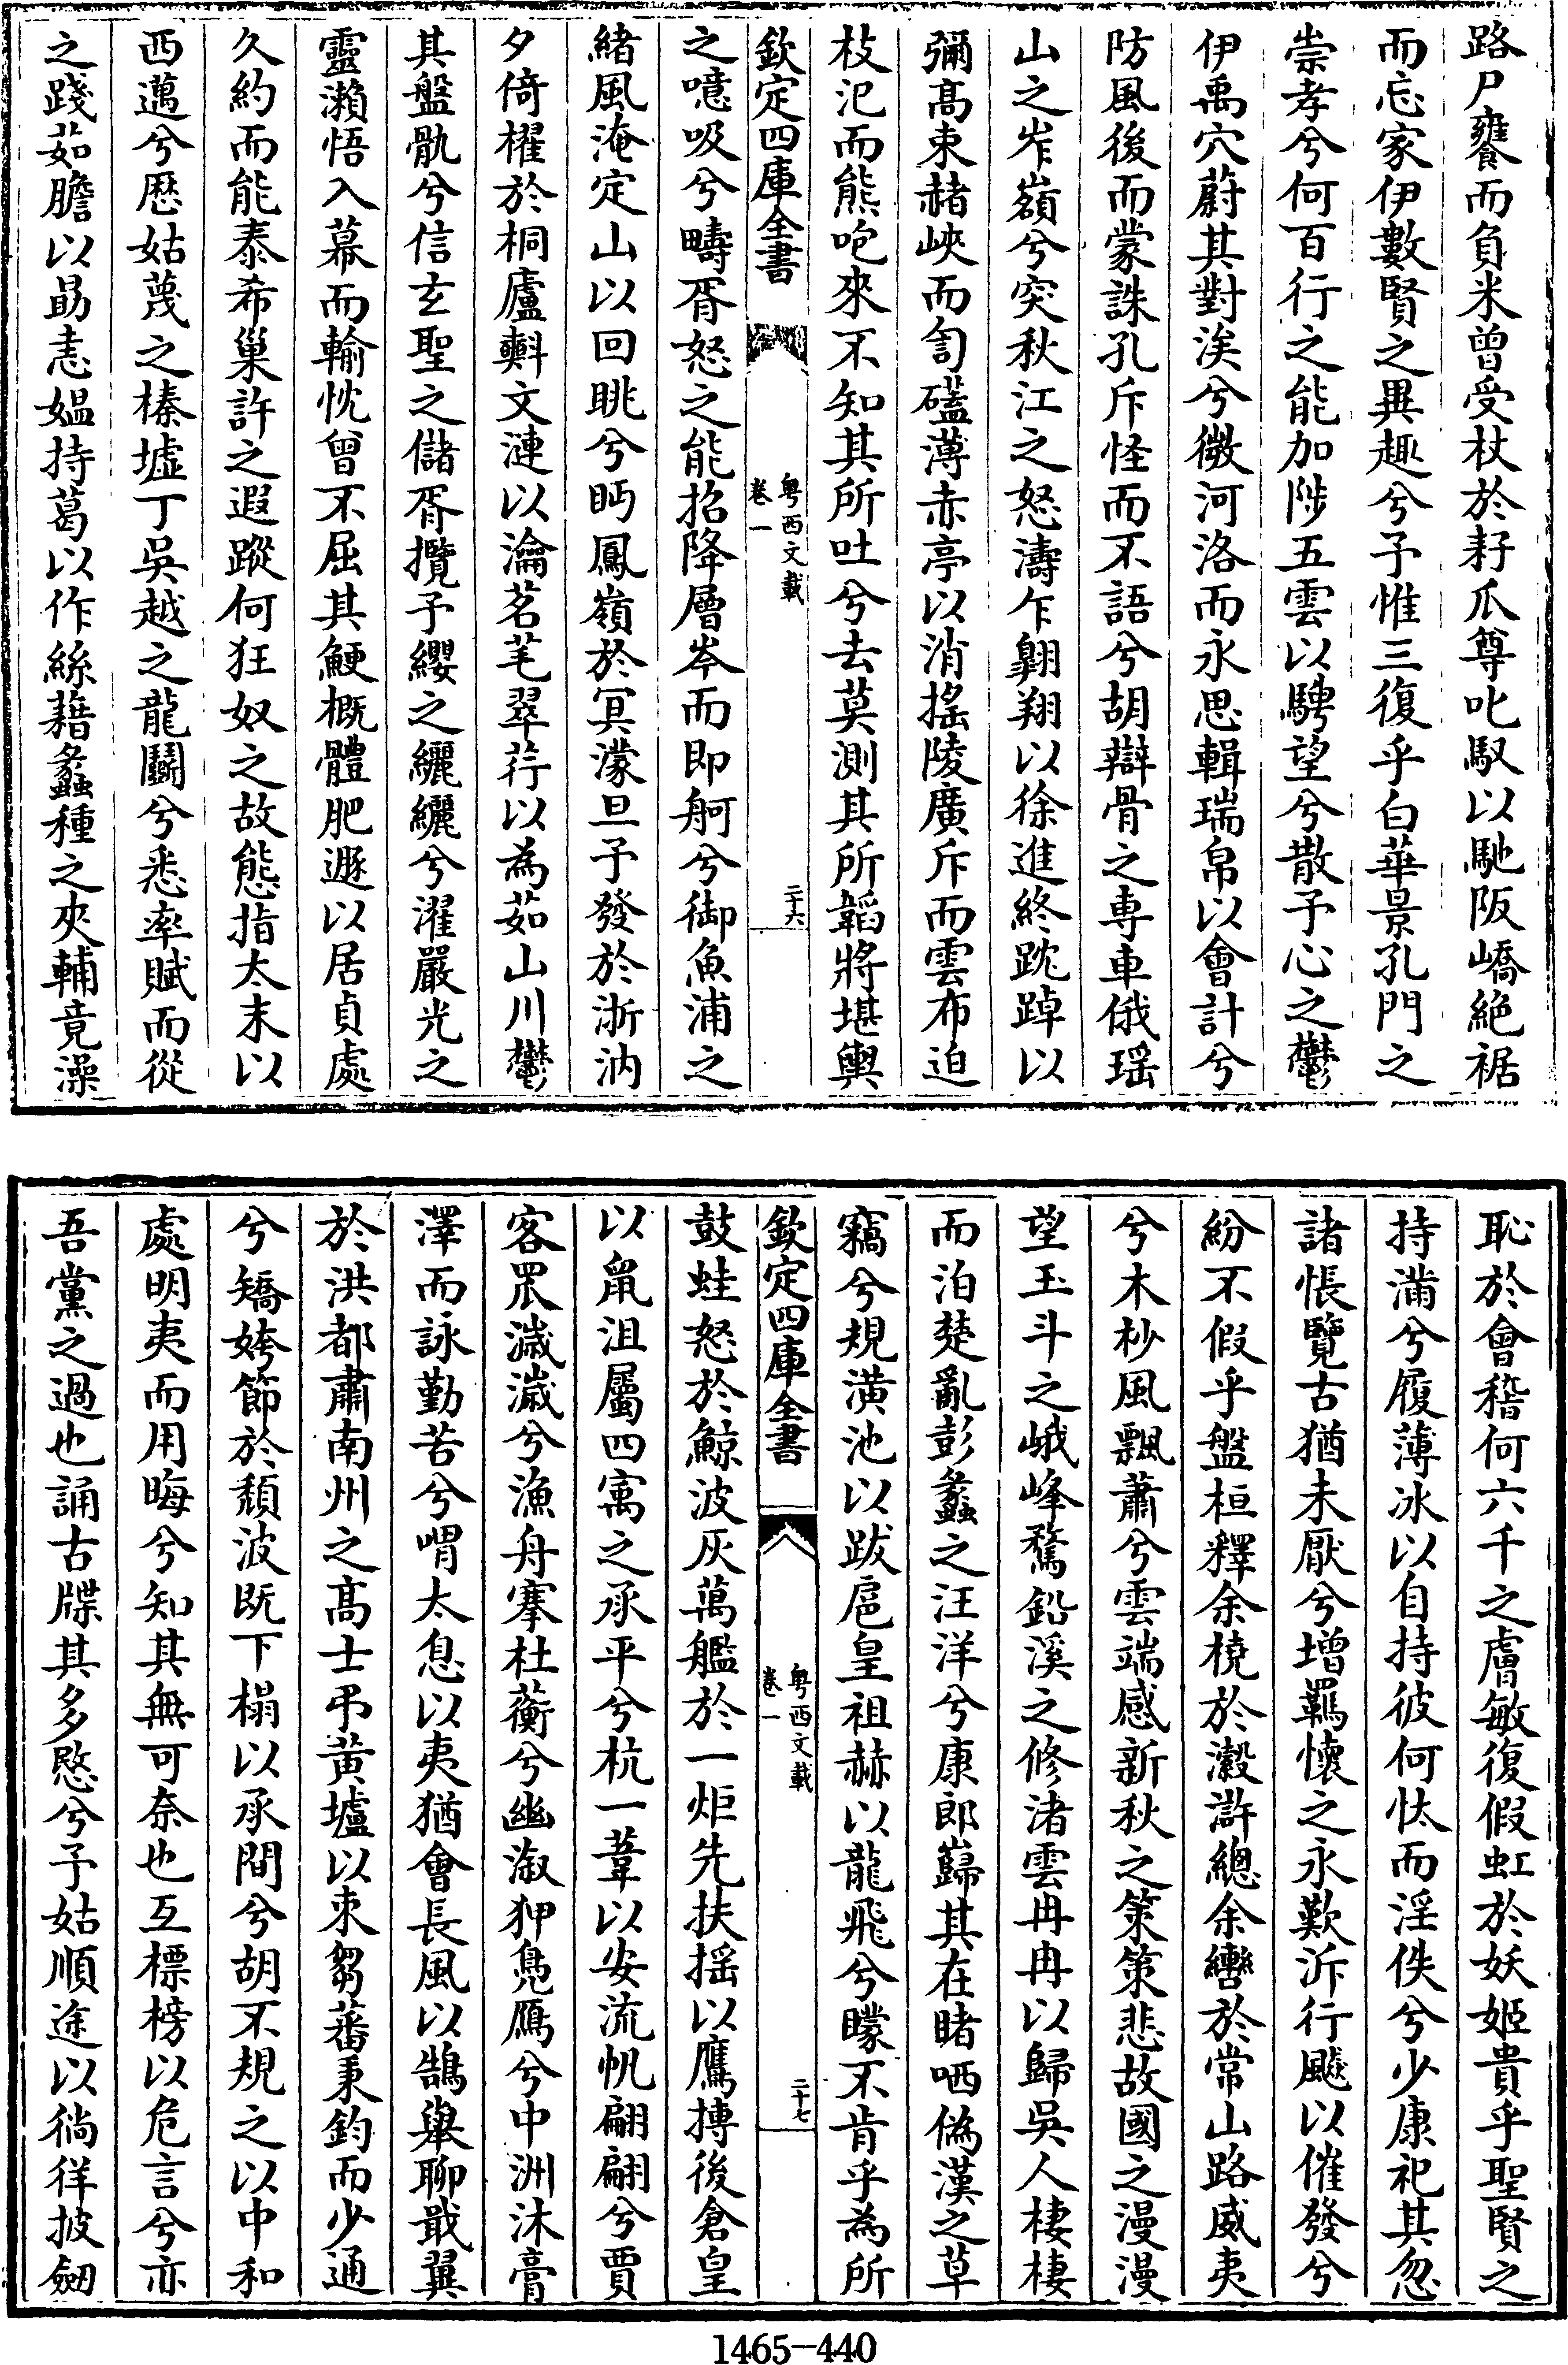 路尸饔而負米曾受杖於耔爪尊叱馭以馳阪嶠絶裾
而忘家伊數賢之異趣兮予惟三復乎白華景孔門之
崇孝兮何百行之能加陟五雲以騁望兮散予心之鬱
伊禹穴蔚其對涘兮微河洛而永思輯瑞帛以會計兮
防風後而蒙誅孔斥怪而不語兮胡辯骨之專車俄瑶
山之岝嶺兮突秋江之怒濤乍翺翔以徐進終踸踔以
彌髙東赭峽而訇礚薄赤亭以消搖陵廣斥而雲布迫
枝氾而熊咆來不知其所吐兮去莫測其所韜將堪輿
欽定四庫全書
粤西文載
卷一
二十六
之噫吸兮疇胥怒之能招降層岑而即舸兮御魚浦之
緒風淹定山以回眺兮眄鳳嶺於冥濛旦予發於浙汭
夕倚櫂於桐廬斞文漣以瀹茗芼翠荇以為茹山川鬱
其盤骩兮信玄聖之儲胥攬予纓之纚纚兮濯嚴光之
靈瀨悟入幕而輸忱曾不屈其鯁概體肥遯以居貞處
久約而能泰希巢許之遐蹤何狂奴之故態指太末以
西邁兮歴姑蔑之榛墟丁吳越之龍鬭兮悉率賦而從
之踐茹膽以勗恚媪持葛以作絲藉蠡種之夾輔竟澡
恥於會稽何六千之膚敏復假虹於妖姬貴乎聖賢之
持滿兮履薄冰以自持彼何忲而淫佚兮少康祀其忽
諸悵覽古猶未厭兮增羈懷之永歎泝行飈以催發兮
紛不假乎盤桓釋余橈於瀫滸總余轡於常山路威夷
兮木杪風飄蕭兮雲端感新秋之策策悲故國之漫漫
望玉斗之峨峰騖鉛溪之修渚雲冉冉以歸吳人棲棲
而泊楚亂彭蠡之汪洋兮康郎巋其在睹哂偽漢之草
竊兮規潢池以跋扈皇祖赫以龍飛兮矇不肯乎為所
欽定四庫全書
粤西文載
卷一
二十七
鼓蛙怒於鯨波灰萬艦於一炬先扶揺以鷹摶後倉皇
以鼠沮屬四寓之承平兮杭一葦以安流帆翩翩兮賈
客罛濊濊兮漁舟搴杜蘅兮幽溆狎鳬鴈兮中洲沐膏
澤而詠勤苦兮喟太息以夷猶會長風以鵠舉聊戢翼
於洪都肅南州之髙士弔黄壚以束芻蕃秉鈞而少通
兮矯姱節於頽波既下榻以承間兮胡不規之以中和
處明夷而用晦兮知其無可奈也互標榜以危言兮亦
吾黨之過也誦古牒其多愍兮予姑順途以徜徉披劒
1465-440